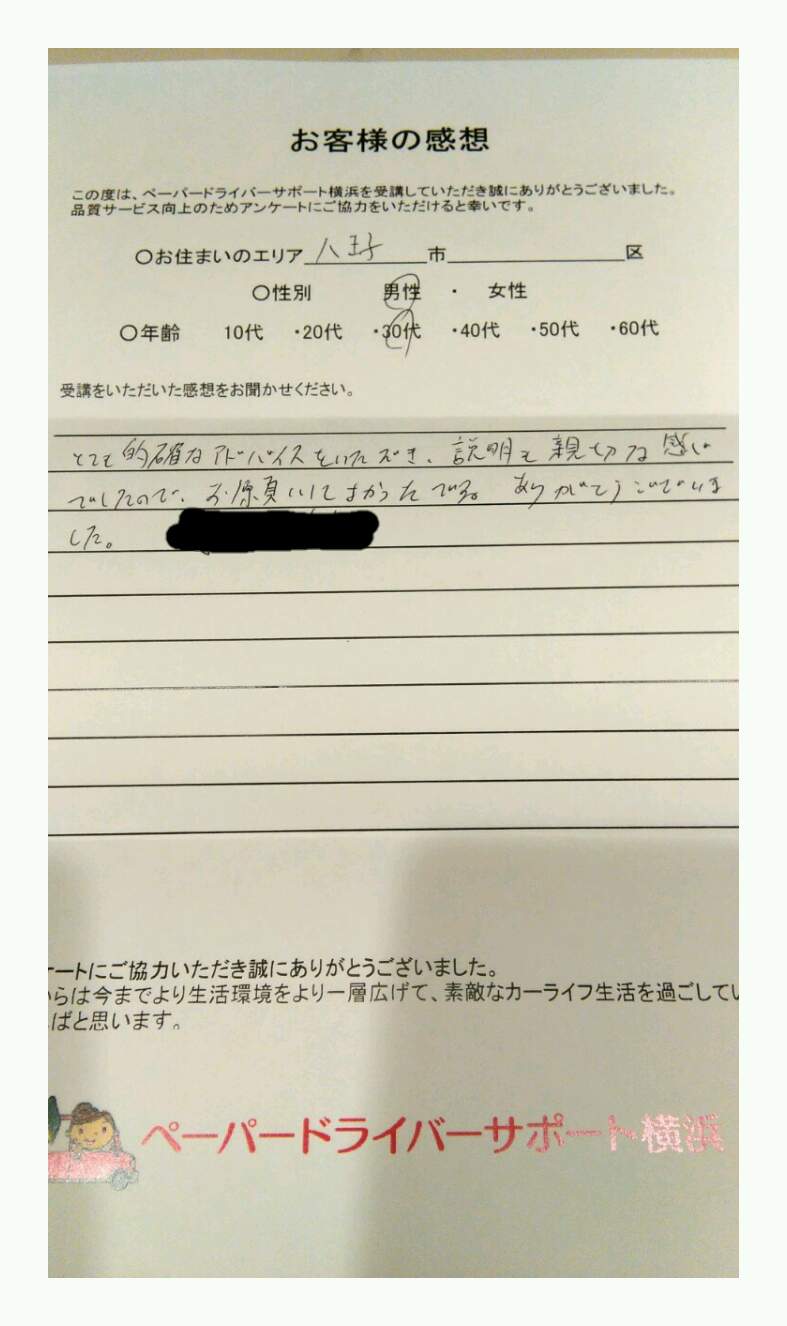 お客様の感想
この度は、ペーパードライバーサポート横浜を受講していただき誠にありがとうございました。
品質サービス向上のためアンケートにご協力をいただけると幸いです。
〇お住まいのエリア 八王子 市 区
〇性別 男性 ・ 女性
〇年齢 10代 ・20代 ・30代 ・40代 ・50代 ・60代
受講をいただいた感想をお聞かせください。
とても的確なアドバイスをいただき、説明も親切な感じ
でしたので、お願いしてよかったです。ありがとうございま
した。
ケートにご協力いただき誠にありがとうございました。
からは今までより生活環境をより一層広げて、素敵なカーライフ生活を過ごしてい
ればと思います。
ペーパードライバーサポート横浜